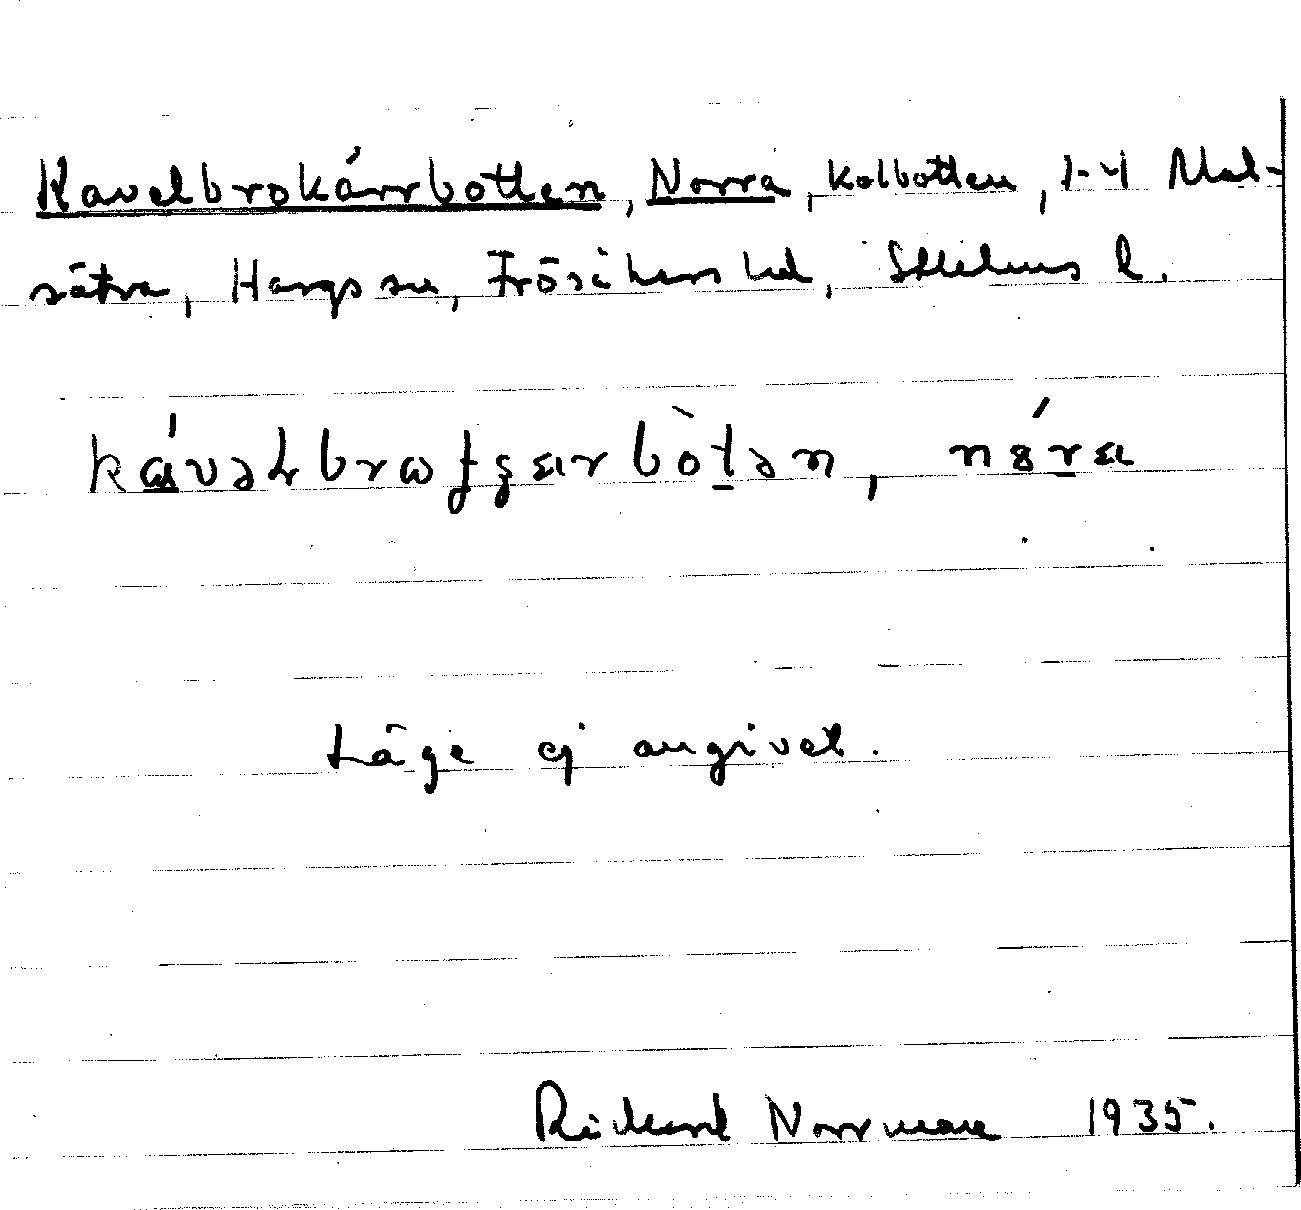 Kavelbrokärrbotten, Norra, kolbotten, 1-4 Mal-
sätra, Hargs sn, Frösåkers hd, Sthlms l.
kávəLbroʈʂarbòtən, nóra
Läge ej angivet.
Rickard Norrman 1935.